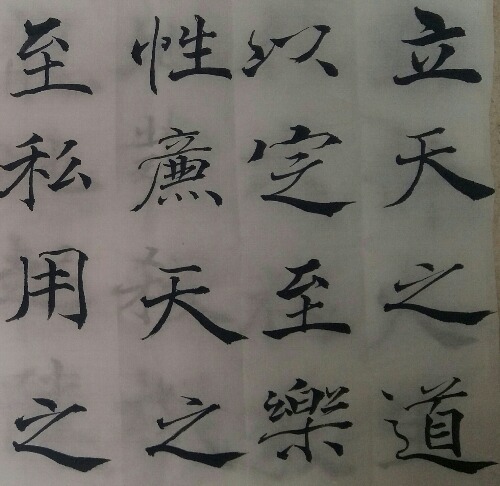 立天之道
以定至樂
性廉天之
至私用之